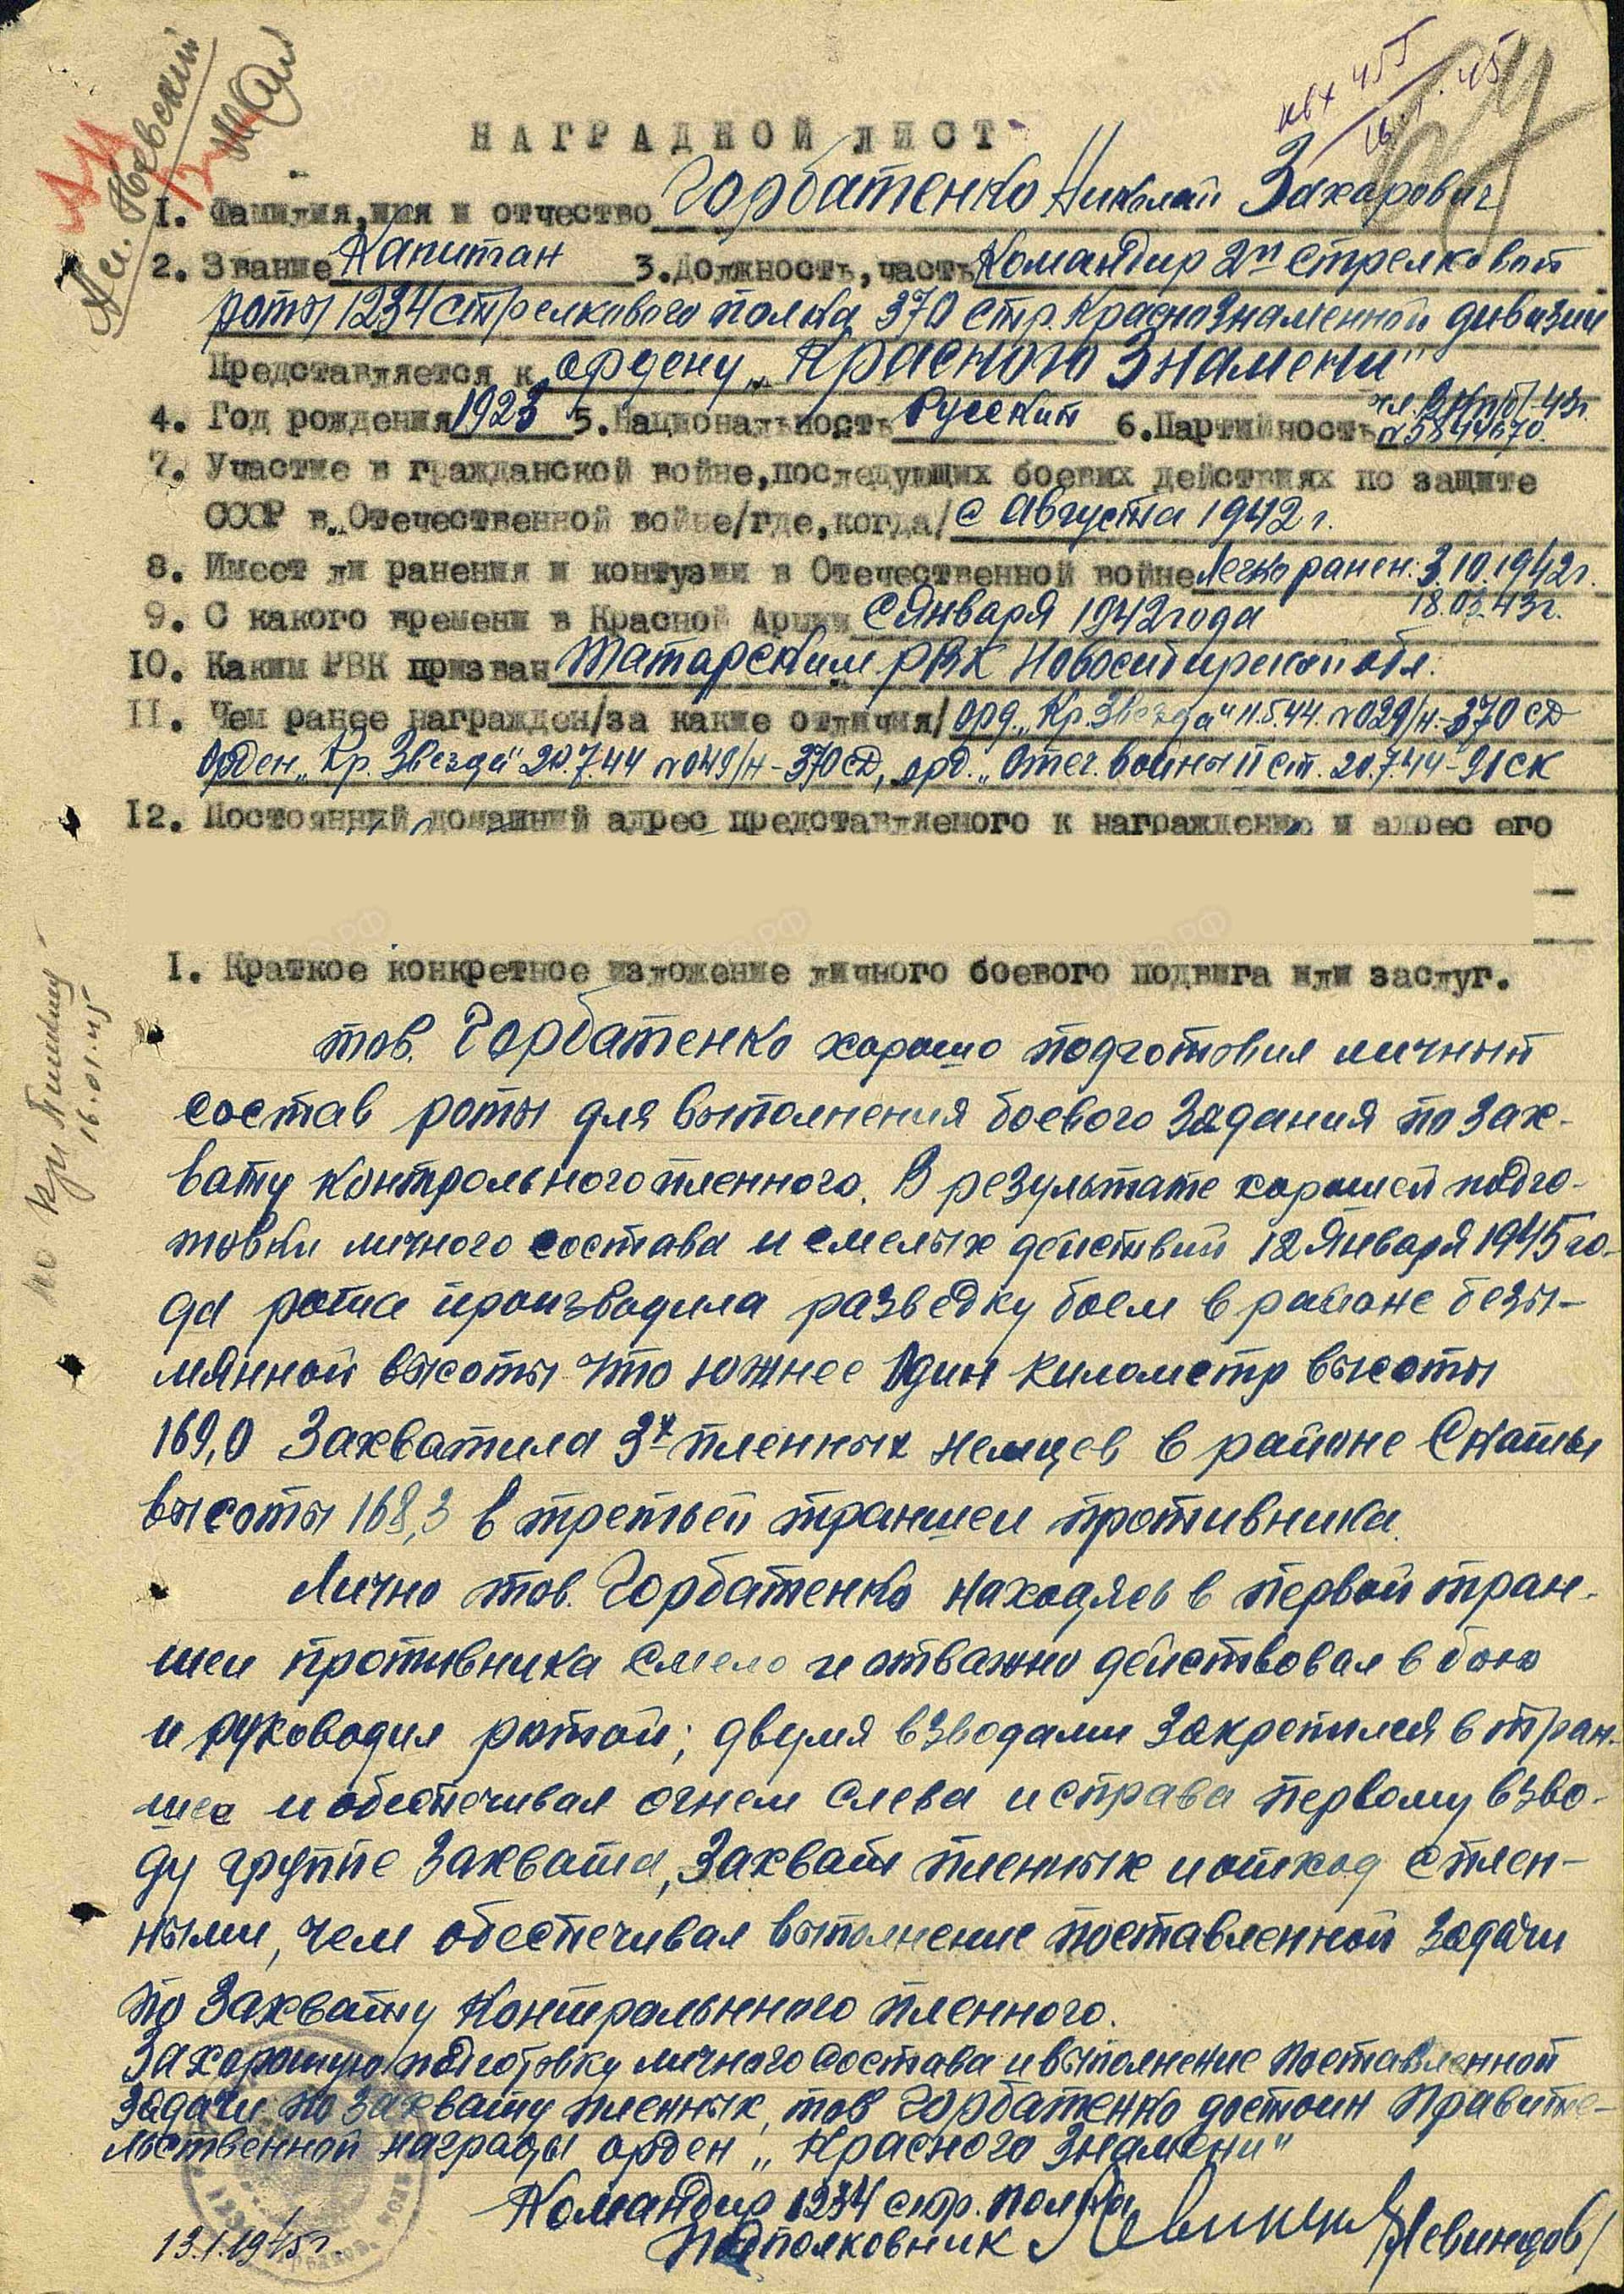 Ал. Невский
вх 455
16.1.45
НАГРАДНОЙ ЛИСТ
1. Фамилия, имя и отчество Горбатенко Николай Захарович
2. Звание Капитан 3. Должность, часть Командир 2й стрелковой
роты 1234 стрелкового полка 370 стр. Краснознаменной дивизии
Представляется к ордену „Красного Знамени"
4. Год рождения 1923 5. Национальность Русский 6. Партийность чл. ВКП(б)-43г.
7. Участие в гражданской войне, последующих боевых действиях по защите
СССР в Отечественной войне/где, когда/ с августа 1942 г.
8. Имеет ли ранения и контузии в Отечественной войне Легко ранен: 3.10.1942г.
18.03.43г.
9. С какого времени в Красной Армии с Января 1942 года
10. Каким РВК призван Татарским РВК Новосибирской обл.
11. Чем ранее награжден/за какие отличия/ орд. „Кр. Звезда" 11.5.44. №029/н-370 СД
Орден „Кр. Звезда" 20.7.44 №049/н-370 СД, орд. „Отеч. войны II ст. 20.7.44-91 СК
12. Постоянный домашний адрес представляемого к награждению и адрес его
1. Краткое конкретное изложение личного боевого подвига или заслуг.
тов. Горбатенко хорошо подготовил личный
состав роты для выполнения боевого задания по зах-
вату контрольного пленного. В результате хорошей подго-
товки личного состава и смелых действий 12 Января 1945 го-
да рота производила разведку боем в районе безы-
мянной высоты что южнее один километр высоты
169,0 Захватила 3х пленных немцев в районе Скаты
высоты 168,3 в третьей траншеи противника.
Лично тов. Горбатенко находясь в первой тран-
шеи противника смело и отважно действовал в бою
и руководил ротой; двумя взводами закрепился в тран-
шее и обеспечивал огнем слева и справа первому взво-
ду группе захвата, захват пленных и отход с плен-
ными, чем обеспечивал выполнение поставленной задачи
по захвату Контрольнного пленного.
За хорошую подготовку личного состава и выполнение поставленной
задачи по захвату пленных, тов Горбатенко достоин Правите-
льственной награды орден „Красного Знамени"
Командир 1234 стр. полка
Подполковник /Левинцов/
13.1.1945г.
16.01.45